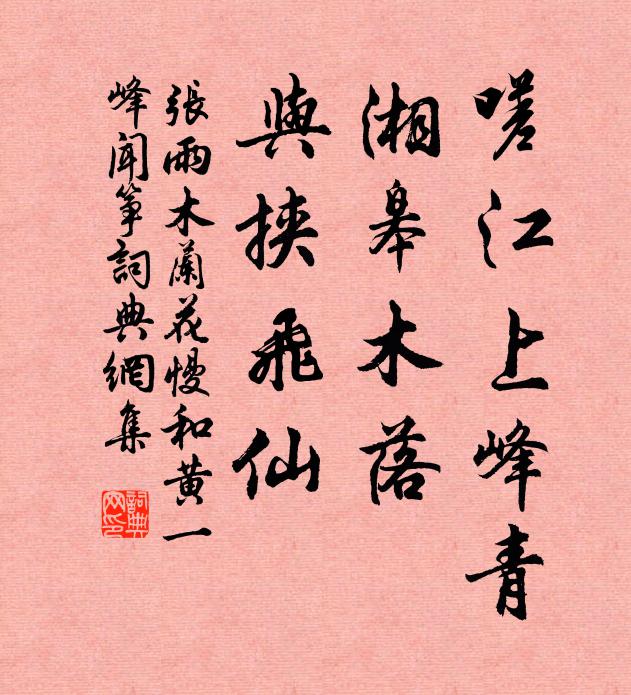 嗟江上峰青
湘皋木落
與挾飛仙
張雨木蘭花慢和黃一
峰聞箏詞典網集
詞典网印